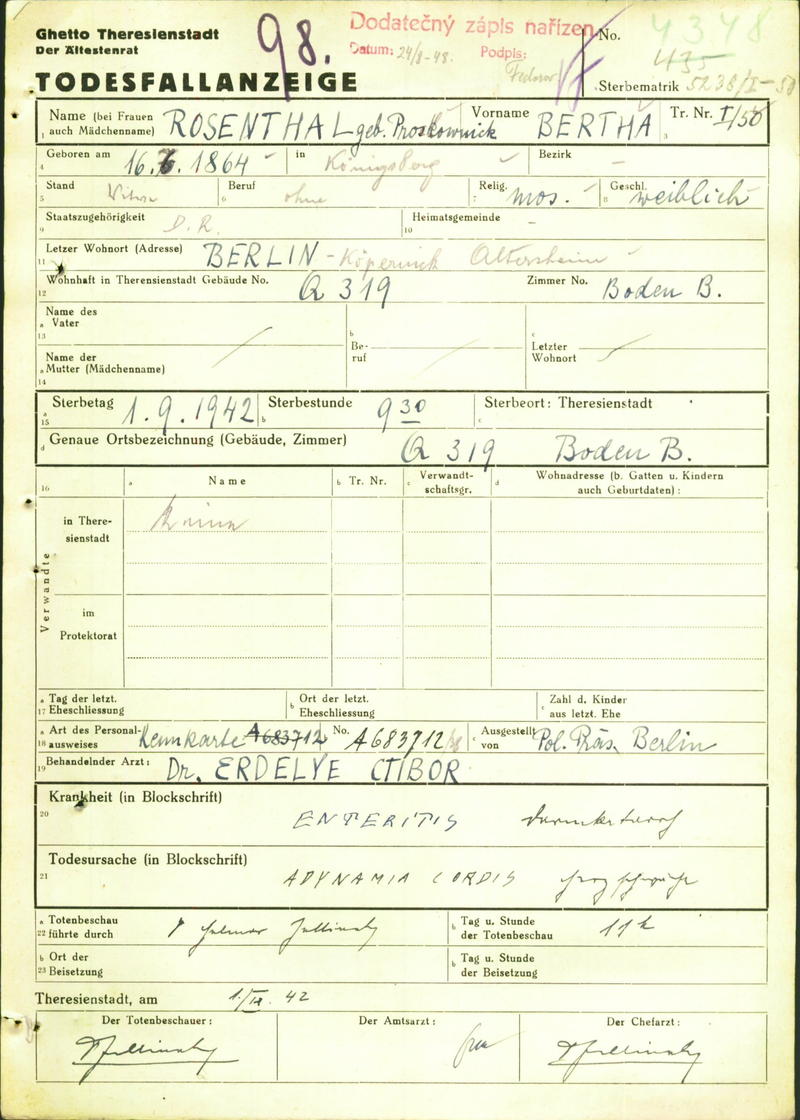 Ghetto Theresienstadt
Der Ältestenrat
98.
Dodatečný zápis nařízen
Datum: 24/8-48. Podpis:
No. 4348
435
TODESFALLANZEIGE
Sterbematrik 5238/I-50
Name (bei Frauen auch Mädchenname) ROSENTHAL geb. Proskownick Vorname BERTHA Tr. Nr. I/50
1
3
Geboren am 16. 6. 1864 in Königsberg Bezirk –
4
Stand Witwe Beruf ohne Relig. mos. Geschl. weiblich
5 6 7 8
Staatszugehörigkeit D. R. Heimatsgemeinde –
9 10
Letzer Wohnort (Adresse) BERLIN - Köpernick Altersheim
11
Wohnhaft in Theresienstadt Gebäude No. Q 319 Zimmer No. Boden B.
12
Name des
a Vater
13
b Be-
ruf
c Letzter
Wohnort
Name der
a Mutter (Mädchenname)
14
a Sterbetag 1. 9. 1942 b Sterbestunde 9 30 c Sterbeort: Theresienstadt
15
d Genaue Ortsbezeichnung (Gebäude, Zimmer) Q 319 Boden B.
16 a Name b Tr. Nr. c Verwandt-
schaftsgr. d Wohnadresse (b. Gatten u. Kindern
auch Geburtdaten):
Verwandte
in There-
sienstadt
im
Protektorat
a Tag der letzt.
17 Eheschliessung
b Ort der letzt.
Eheschliessung
c Zahl d. Kinder
aus letzt. Ehe
a Art des Personal-
18 ausweises Kennkarte A683712 b No. A683712/38 c Ausgestellt
von Pol. Präs. Berlin
Behandelnder Arzt: Dr. ERDELYE CTIBOR
19
Krankheit (in Blockschrift)
20 ENTERITIS Darmkatarrh
Todesursache (in Blockschrift)
21 ADYNAMIA CORDIS Herzschwäche
a Totenbeschau
22 führte durch
b Tag u. Stunde
der Totenbeschau 11h
b Ort der
23 Beisetzung
b Tag u. Stunde
der Beisetzung
Theresienstadt, am 1/IX. 42
Der Totenbeschauer: Der Amtsarzt: Der Chefarzt: